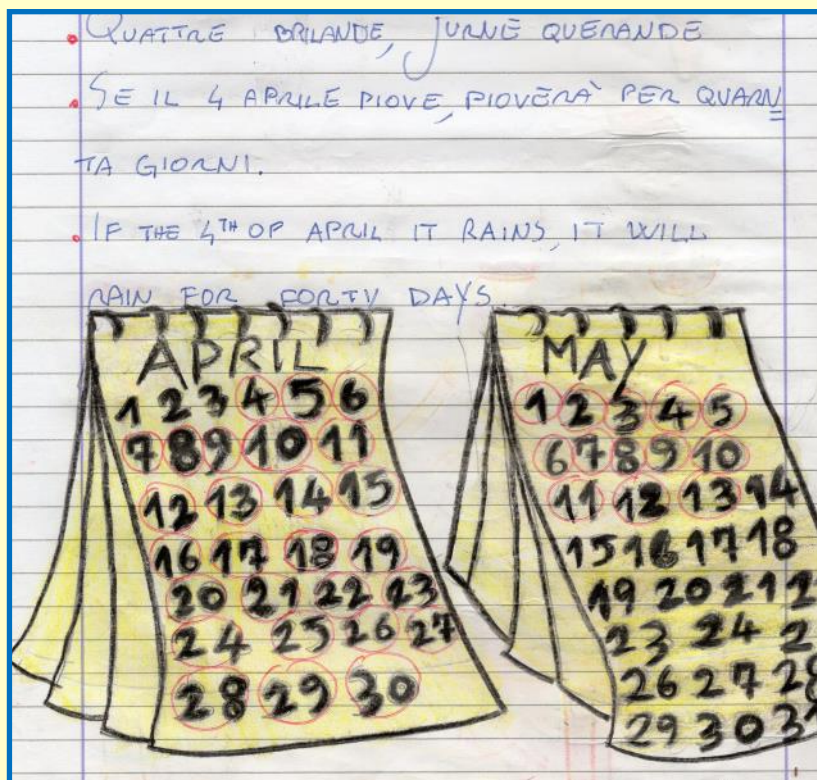 • QUATTRE BRILANDE, JURNE QUERANDE
• SE IL 4 APRILE PIOVE, PIOVERÀ PER QUARN
TA GIORNI.
• IF THE 4TH OF APRIL IT RAINS, IT WILL
RAIN FOR FORTY DAYS.
APRIL
1 2 3 4 5 6
7 8 9 10 11
12 13 14 15
16 17 18 19
20 21 22 23
24 25 26 27
28 29 30
MAY
1 2 3 4 5
6 7 8 9 10
11 12 13 14
15 16 17 18
19 20 21 2
23 24 2
26 27 28
29 30 3